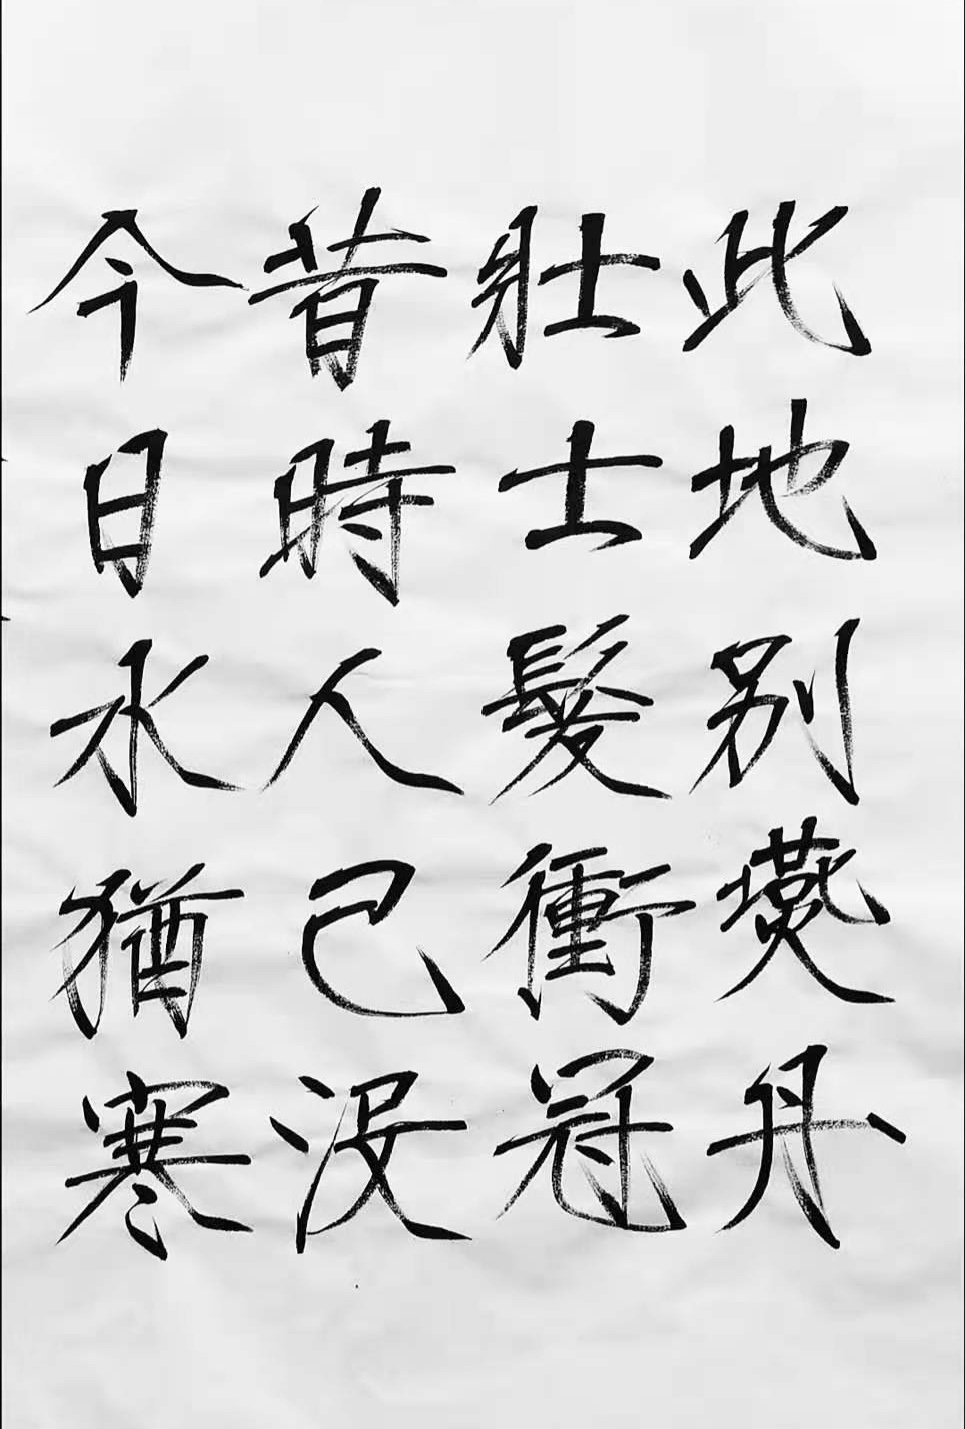 此地别燕丹
壮士髮衝冠
昔時人已没
今日水猶寒